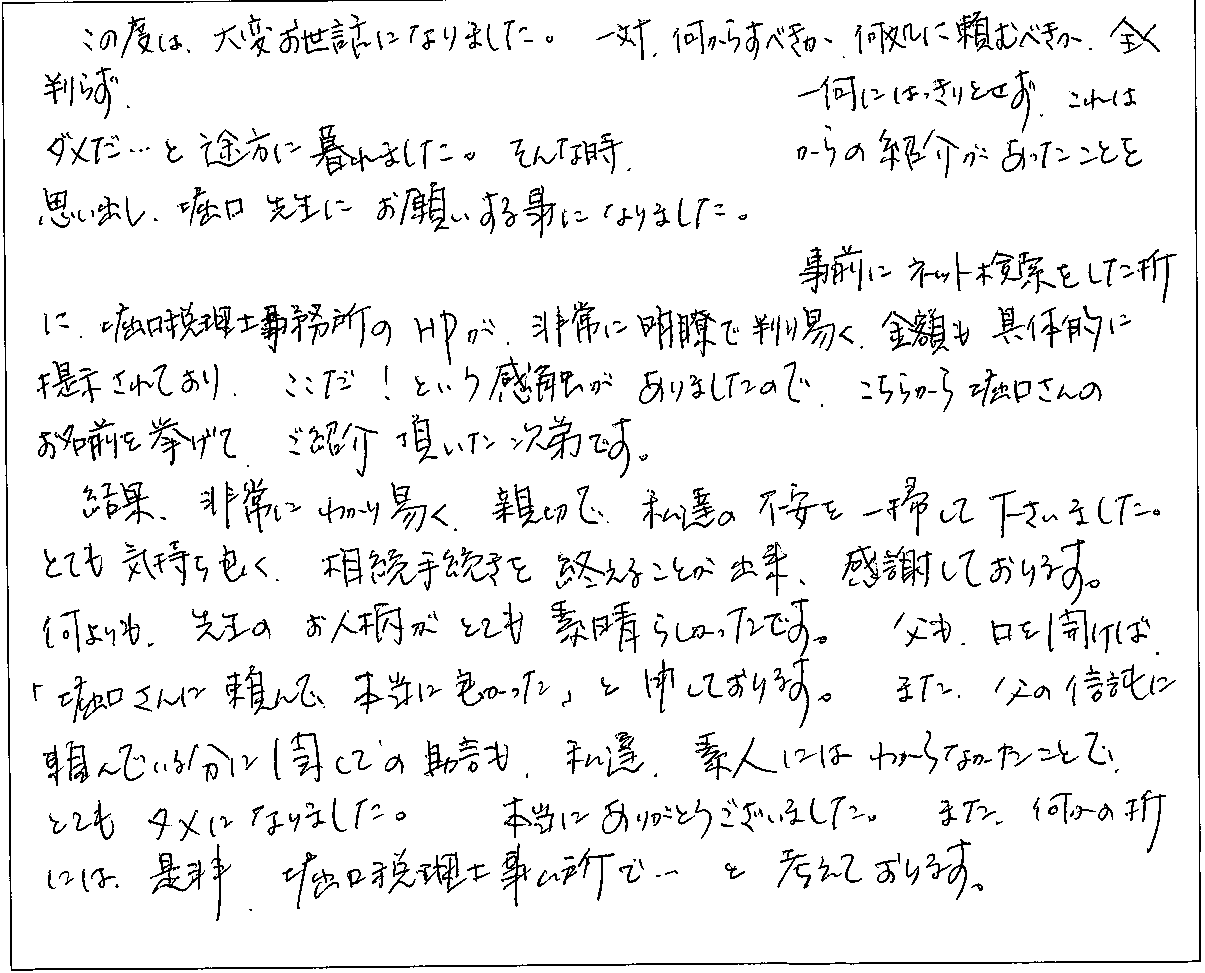 この度は、大変お世話になりました。一対、何からすべきか、何処に頼むべきか、全く
判らず、 一何にはっきりとせず、これは
ダメだ…と途方に暮れました。そんな時、 からの紹介があったことを
思い出し、堀口先生にお願いする事になりました。
事前にネット検索をした所
に、堀口税理士事務所のHPが、非常に明瞭で判り易く、金額も具体的に
提示されており、ここだ！という感触がありましたので、こちらから堀口さんの
お名前を挙げて、ご紹介頂いた次第です。
結果、非常にわかり易く、親切で、私達の不安を一掃して下さいました。
とても気持ち良く、相続手続きを終えることが出来、感謝しております。
何よりも、先生のお人柄がとても素晴らしかったです。父も、口を開けば、
「堀口さんに頼んで、本当に良かった」と申しております。また、父の信託に
頼んでいる分に関しての助言も、私達、素人にはわからなかったことで、
とてもタメになりました。本当にありがとうございました。また、何かの折
には、是非、堀口税理士事ム所で…と考えております。